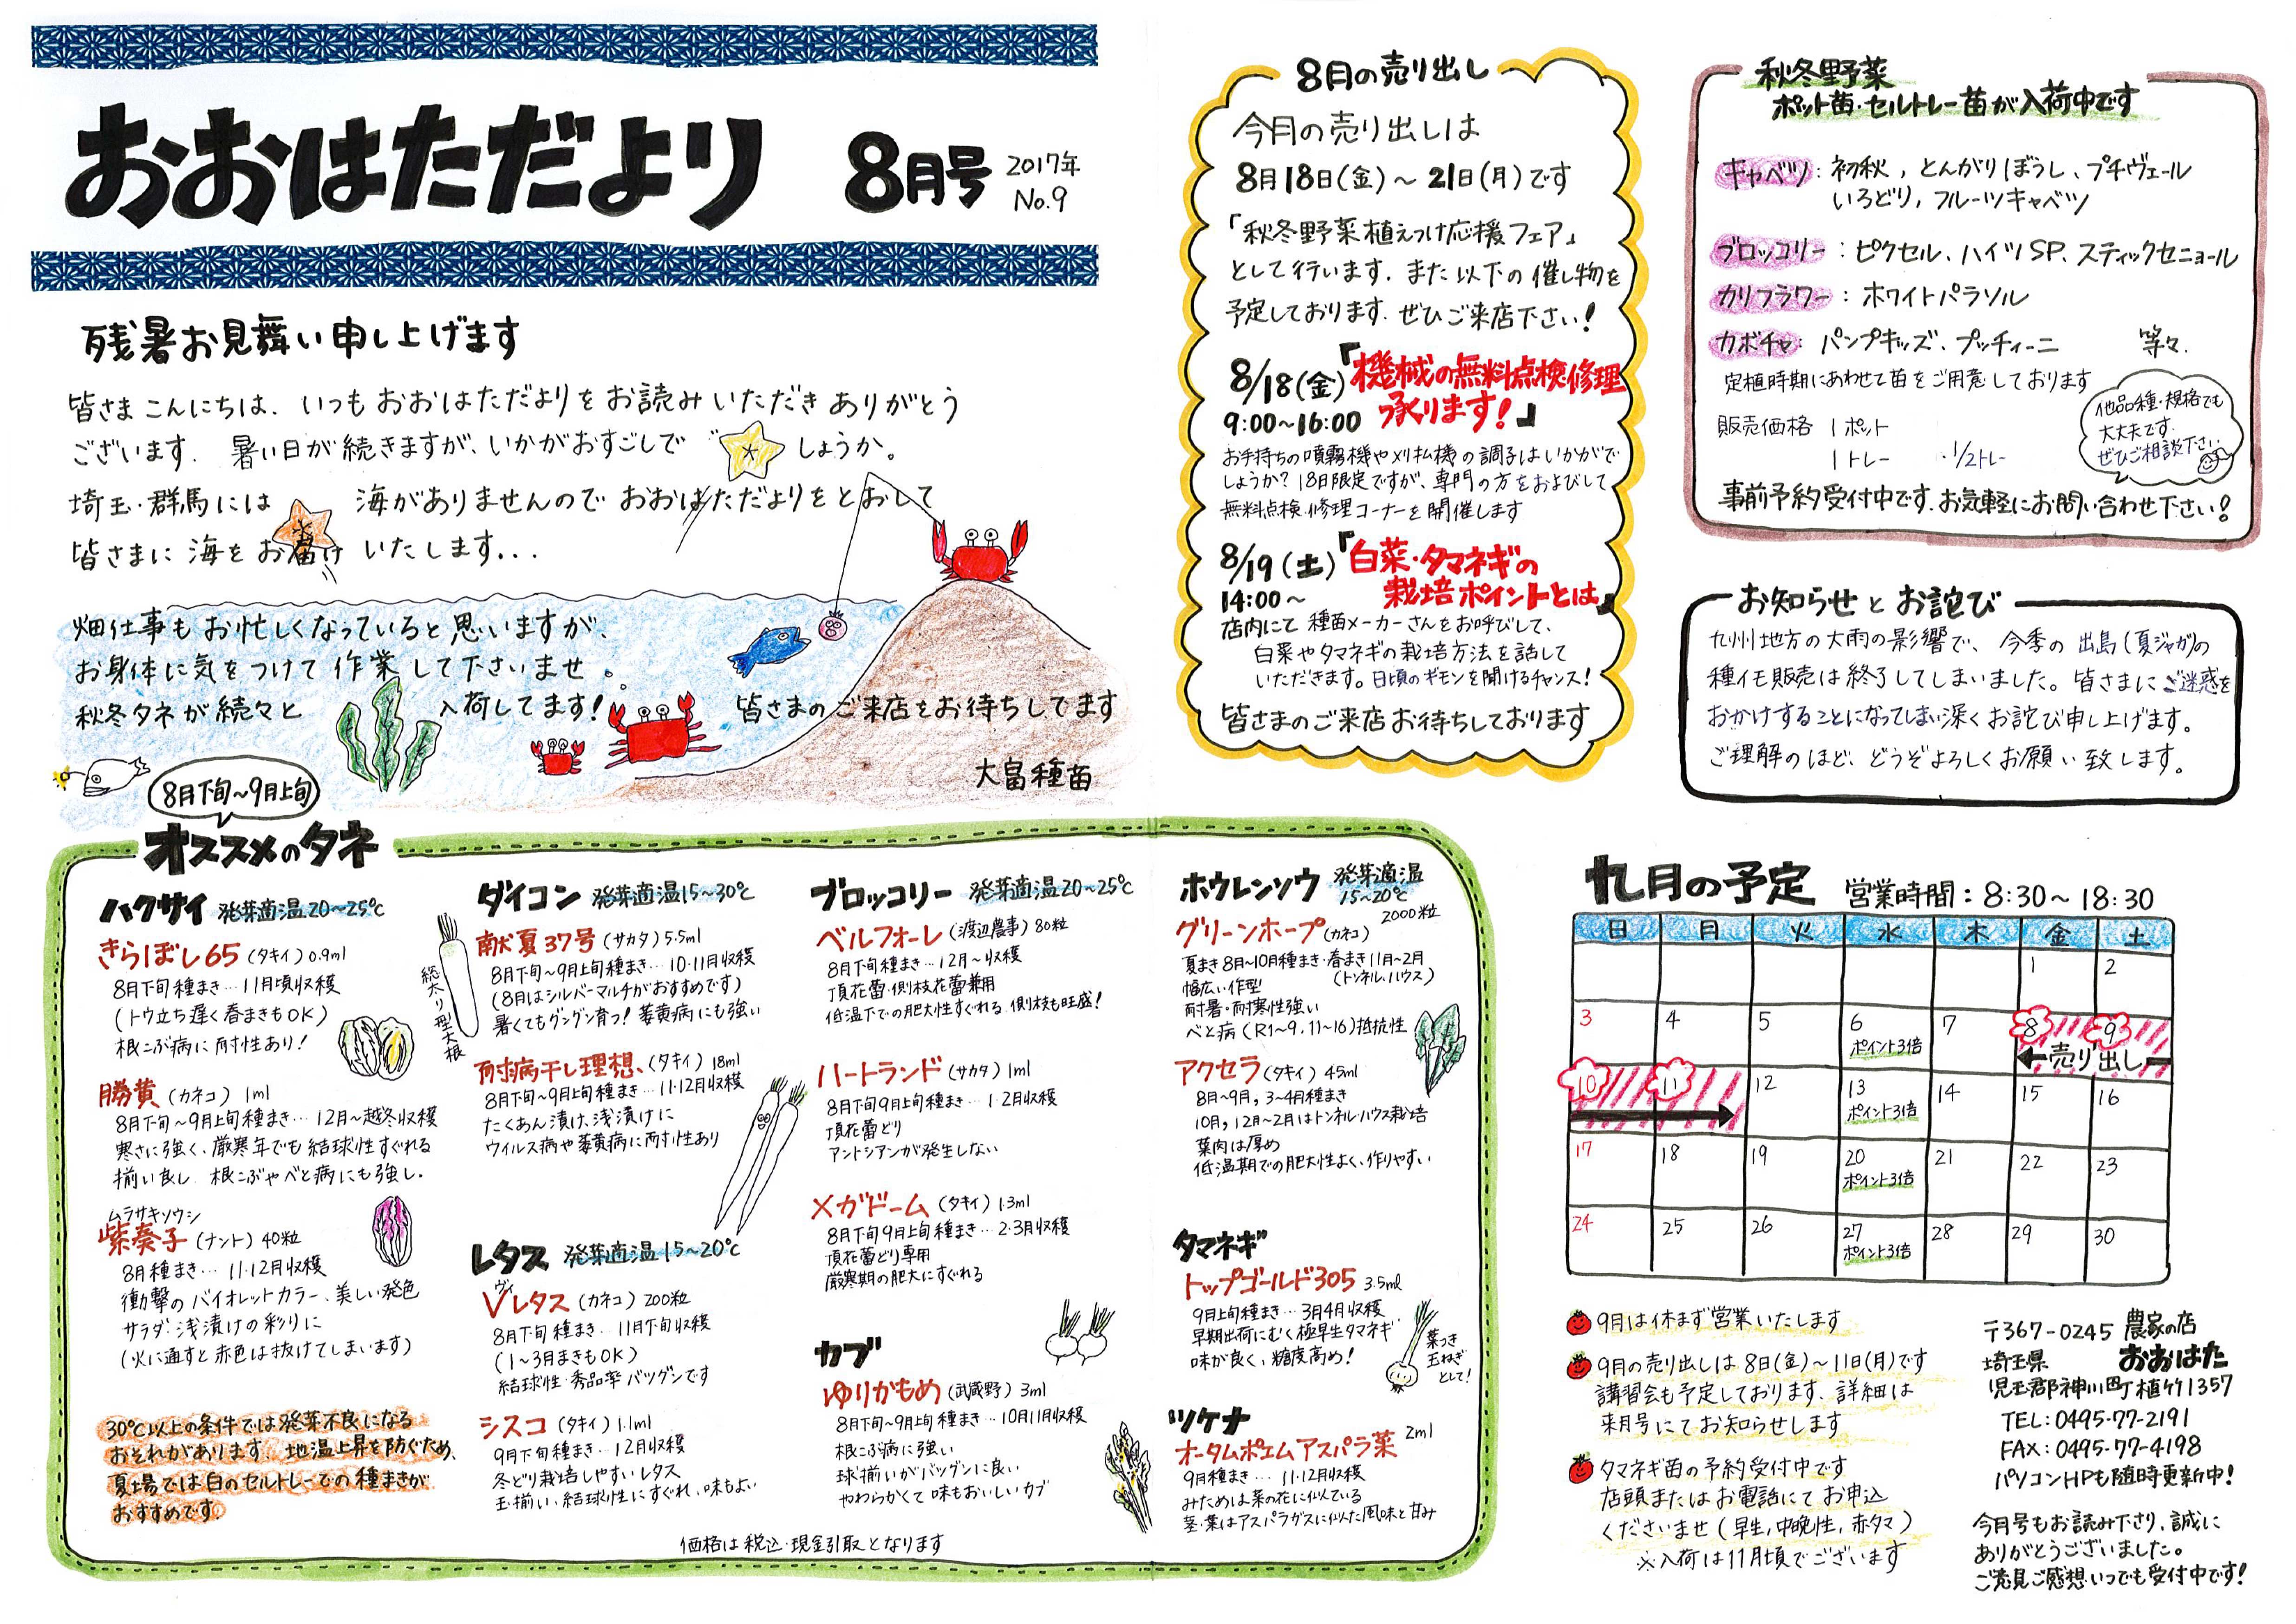 おおはただより 8月号 2017年 No.9
残暑お見舞い申し上げます
皆さまこんにちは、いつもおおはただよりをお読みいただきありがとう
ございます. 暑い日が続きますが、いかがおすごしで しょうか。
埼玉・群馬には 海がありませんのでおおはただよりをとおして
皆さまに海をお届けいたします...
畑仕事もお忙しくなっていると思いますが、
お身体に気をつけて作業して下さいませ。
秋冬タネが続々と 入荷してます!
皆さまのご来店をお待ちしてます
大畠種苗
8月の売り出し
今月の売り出しは
8月18日(金)～21日(月)です
「秋冬野菜植えつけ応援フェア」
として行います. また以下の催し物を
予定しております. ぜひご来店下さい!
8/18(金)『機械の無料点検修理
9:00~16:00 承ります!』
お手持ちの噴霧機や刈払機の調子はいかがで
しょうか? 18日限定ですが、専門の方をおよびして
無料点検・修理コーナーを開催します
8/19(土)『白菜・タマネギの
14:00～ 栽培ポイントとは』
店内にて種苗メーカーさんをお呼びして、
白菜やタマネギの栽培方法を話して
いただきます。日頃のギモンを聞けるチャンス!
皆さまのご来店お待ちしております
秋冬野菜
ポット苗・セルトレー苗が入荷中です
キャベツ: 初秋, とんがりぼうし、プチヴェール
いろどり, フルーツキャベツ
ブロッコリー: ピクセル、ハイツSP、スティックセニョール
カリフラワー: ホワイトパラソル
カボチャ: パンプキッズ、プッチィーニ 等々.
定植時期にあわせて苗をご用意しております
販売価格 1ポット
1トレー ・1/2トレー
他品種・規格でも
大丈夫です.
ぜひご相談下さい
事前予約受付中です. お気軽にお問い合わせ下さい!
お知らせとお詫び
九州地方の大雨の影響で、今季の出島(夏ジャガ)の
種イモ販売は終了してしまいました。皆さまにご迷惑を
おかけすることになってしまい深くお詫び申し上げます。
ご理解のほど、どうぞよろしくお願い致します。
8月下旬～9月上旬
オススメのタネ
ハクサイ 発芽適温20~25℃
きらぼし65 (タキイ) 0.9ml
8月下旬種まき... 11月頃収穫
(トウ立ち遅く春まきもOK)
根こぶ病に耐性あり!
勝黄 (カネコ) 1ml
8月下旬～9月上旬種まき... 12月～越冬収穫
寒さに強く、厳寒年でも結球性すぐれる
揃い良し 根こぶやべと病にも強し.
ムラサキソウシ
紫奏子 (ナント) 40粒
8月種まき... 11・12月収穫
衝撃のバイオレットカラー、美しい発色
サラダ・浅漬けの彩りに
(火に通すと赤色は抜けてしまいます)
30℃以上の条件では発芽不良になる
おそれがあります. 地温上昇を防ぐため、
夏場では白のセルトレーでの種まきが
おすすめです.
ダイコン 発芽適温15~30℃
献夏37号 (サカタ) 5.5ml
8月下旬～9月上旬種まき... 10・11月収穫
(8月はシルバーマルチがおすすめです)
暑くてもグングン育つ! 萎黄病にも強い
総太り型大根
耐病干し理想 (タキイ) 18ml
8月下旬～9月上旬種まき... 11・12月収穫
たくあん漬け、浅漬けに
ウイルス病や萎黄病に耐性あり
レタス 発芽適温15~20℃
ヴィ
Vレタス (カネコ) 200粒
8月下旬種まき... 11月下旬収穫
(1～3月まきもOK)
結球性・秀品率バツグンです
シスコ (タキイ) 1.1ml
9月下旬種まき... 12月収穫
冬どり栽培しやすいレタス
玉揃い、結球性にすぐれ、味もよい
ブロッコリー 発芽適温20~25℃
ベルフォーレ (渡辺農事) 80粒
8月下旬種まき... 12月～収穫
頂花蕾・側枝花蕾兼用
低温下での肥大性すぐれる 側枝も旺盛!
ハートランド (サカタ) 1ml
8月下旬9月上旬種まき... 1・2月収穫
頂花蕾どり
アントシアンが発生しない
メガドーム (タキイ) 1.3ml
8月下旬9月上旬種まき... 2・3月収穫
頂花蕾どり専用
厳寒期の肥大にすぐれる
カブ
ゆりかもめ (武蔵野) 3ml
8月下旬～9月上旬種まき... 10月11月収穫
根こぶ病に強い
球揃いがバツグンに良い
やわらかくて味もおいしいカブ
ホウレンソウ 発芽適温
15~20℃
グリーンホープ (カネコ) 2000粒
夏まき8月～10月種まき・春まき11月～2月
(トンネル、ハウス)
幅広い作型
耐暑・耐寒性強い
べと病(R1～9, 11～16)抵抗性
アクセラ (タキイ) 45ml
8月～9月, 3～4月種まき
10月, 12月～2月はトンネル・ハウス栽培
葉肉は厚め
低温期での肥大性よく、作りやすい
タマネギ
トップゴールド305 3.5ml
9月上旬種まき... 3月4月収穫
早期出荷にむく極早生タマネギ
味が良く、糖度高め!
葉つき
玉ねぎ
として!
ツケナ
オータムポエムアスパラ菜 2ml
9月種まき... 11・12月収穫
みためは菜の花に似ている
茎・葉はアスパラガスに似た風味と甘み
価格は税込・現金引取となります
九月の予定 営業時間: 8:30~18:30
日 月 火 水 木 金 土
1 2
3 4 5 6 7 8 9
ポイント3倍 売り出し
10 11 12 13 14 15 16
ポイント3倍
17 18 19 20 21 22 23
ポイント3倍
24 25 26 27 28 29 30
ポイント3倍
9月は休まず営業いたします
9月の売り出しは8日(金)～11日(月)です
講習会も予定しております. 詳細は
来月号にてお知らせします
タマネギ苗の予約受付中です
店頭またはお電話にてお申込
くださいませ (早生, 中晩性, 赤タマ)
※入荷は11月頃でございます
〒367-0245 農家の店
埼玉県 おおはた
児玉郡神川町植竹1357
TEL: 0495-77-2191
FAX: 0495-77-4198
パソコンHPも随時更新中!
今月号もお読み下さり、誠に
ありがとうございました。
ご意見ご感想いつでも受付中です!